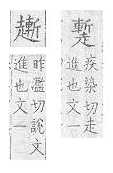 疾染切走
進也文一
昨濫切說文
進也文一